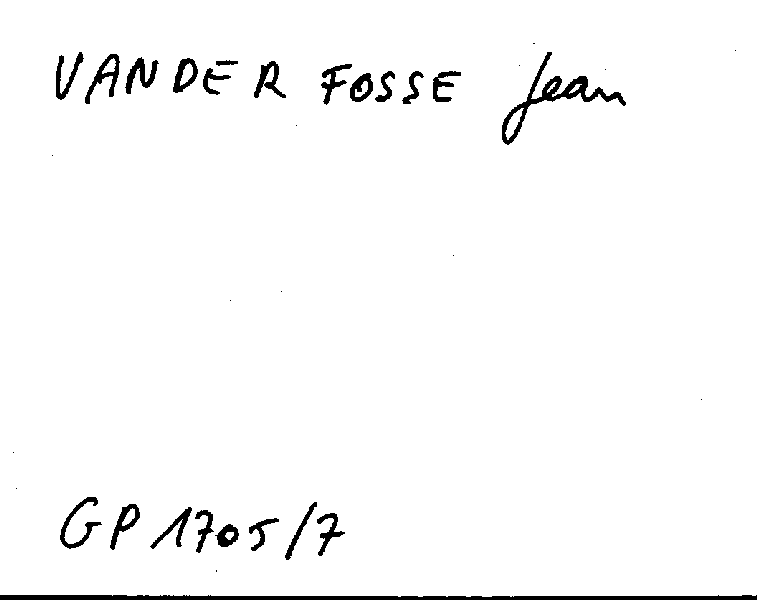 VANDER FOSSE Jean
GP 1705/7